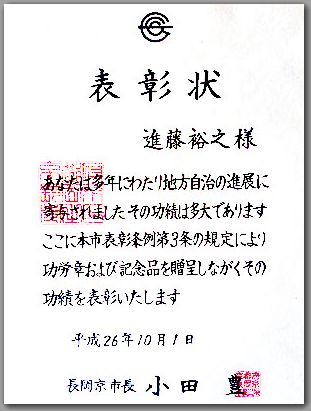 表彰状
進藤裕之様
あなたは多年にわたり地方自治の進展に
寄与されました その功績は多大であります
ここに本市表彰条例第3条の規定により
功労章および記念品を贈呈しながくその
功績を表彰いたします
平成26年10月1日
長岡京市長 小田 豊